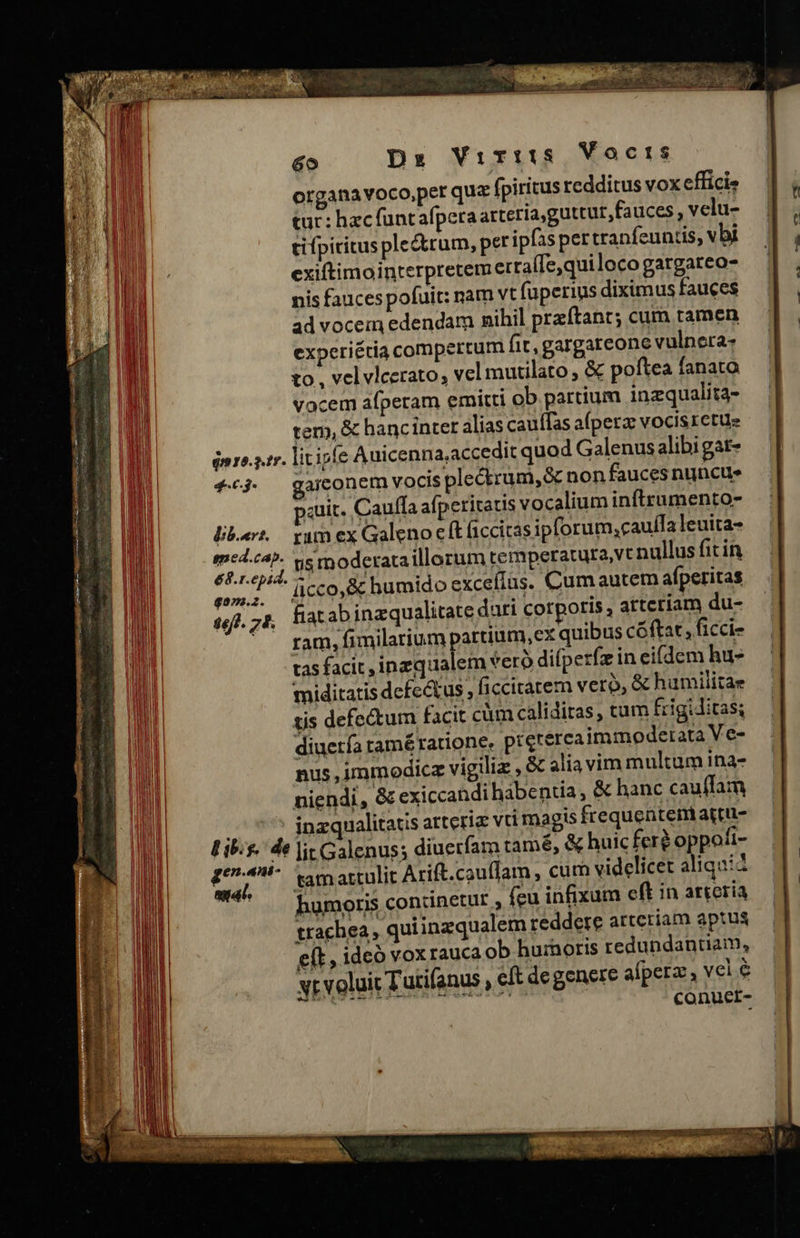 60 De Vitiis Vocis
organa voco, per quæ ſpiritus redditus vox effici-
tur: hæc ſunt aſpera arteria, guttur, fauces, velu-
ti ſpiritus plectrum, per ipſas pertranſeuntis, vbi
exiſtimo interpretem erraſſe, qui loco gargareo-
nis fauces poſuit: nam vt ſuperius diximus fauces
ad vocem edendam nihil præſtant; cum tamen
experiẽtia compertum ſit, gargareone vulnera-
to, vel vlcerato, vel mutilato, & poſtea ſanato
vocem aſperam emitti ob partium inæqualita-
tem, & hanc inter alias cauſſas aſperæ vocis retu-
lit ipſe Auicenna, accedit quod Galenus alibi gar-
gareonem vocis plectrum, & non fauces nuncu-
pauit. Cauſſa aſperitatis vocalium inſtrumento-
rum ex Galeno eſt ſiccitas ipſorum, cauſſa leuita-
tis moderata illorum temperatura, vt nullus ſit in
ſicco, & humido exceſſus. Cum autem aſperitas
fiat ab inæqualitate duri corporis, arteriam du-
ram, ſimilarium partium, ex quibus cõſtat, ſicci-
tas facit, inæqualem verò diſperſæ in eiſdem hu-
miditatis defectus, ſiccitatem verò, & humilita-
tis defectum facit cùm caliditas, tum frigiditas;
diuerſa tamẽ ratione. prętereaimmoderata Ve-
nus, immodicæ vigiliæ, & alia vim multum ina-
niendi, & exiccandi habentia, & hanc cauſſam
inæqualitatis arteriæ vti magis frequentem attu-
lit Galenus; diuerſam tamẽ, & huic ferè oppoſi-
tam attulit Ariſt. cauſſam, cum videlicet aliquid
humoris continetur, ſeu infixum eſt in arteria
trachea, qui inæqualem reddere arteriam aptus
eſt, ideò vox rauca ob humoris redundantiam,
vt voluit Tutiſanus, eſt de genere aſperæ, vel è
conuer-
4.c.3.
lib.art.
med.cap.
68.1.epid.
com.2.
text.78.
Lib.5. de
gen.ani-
mal.